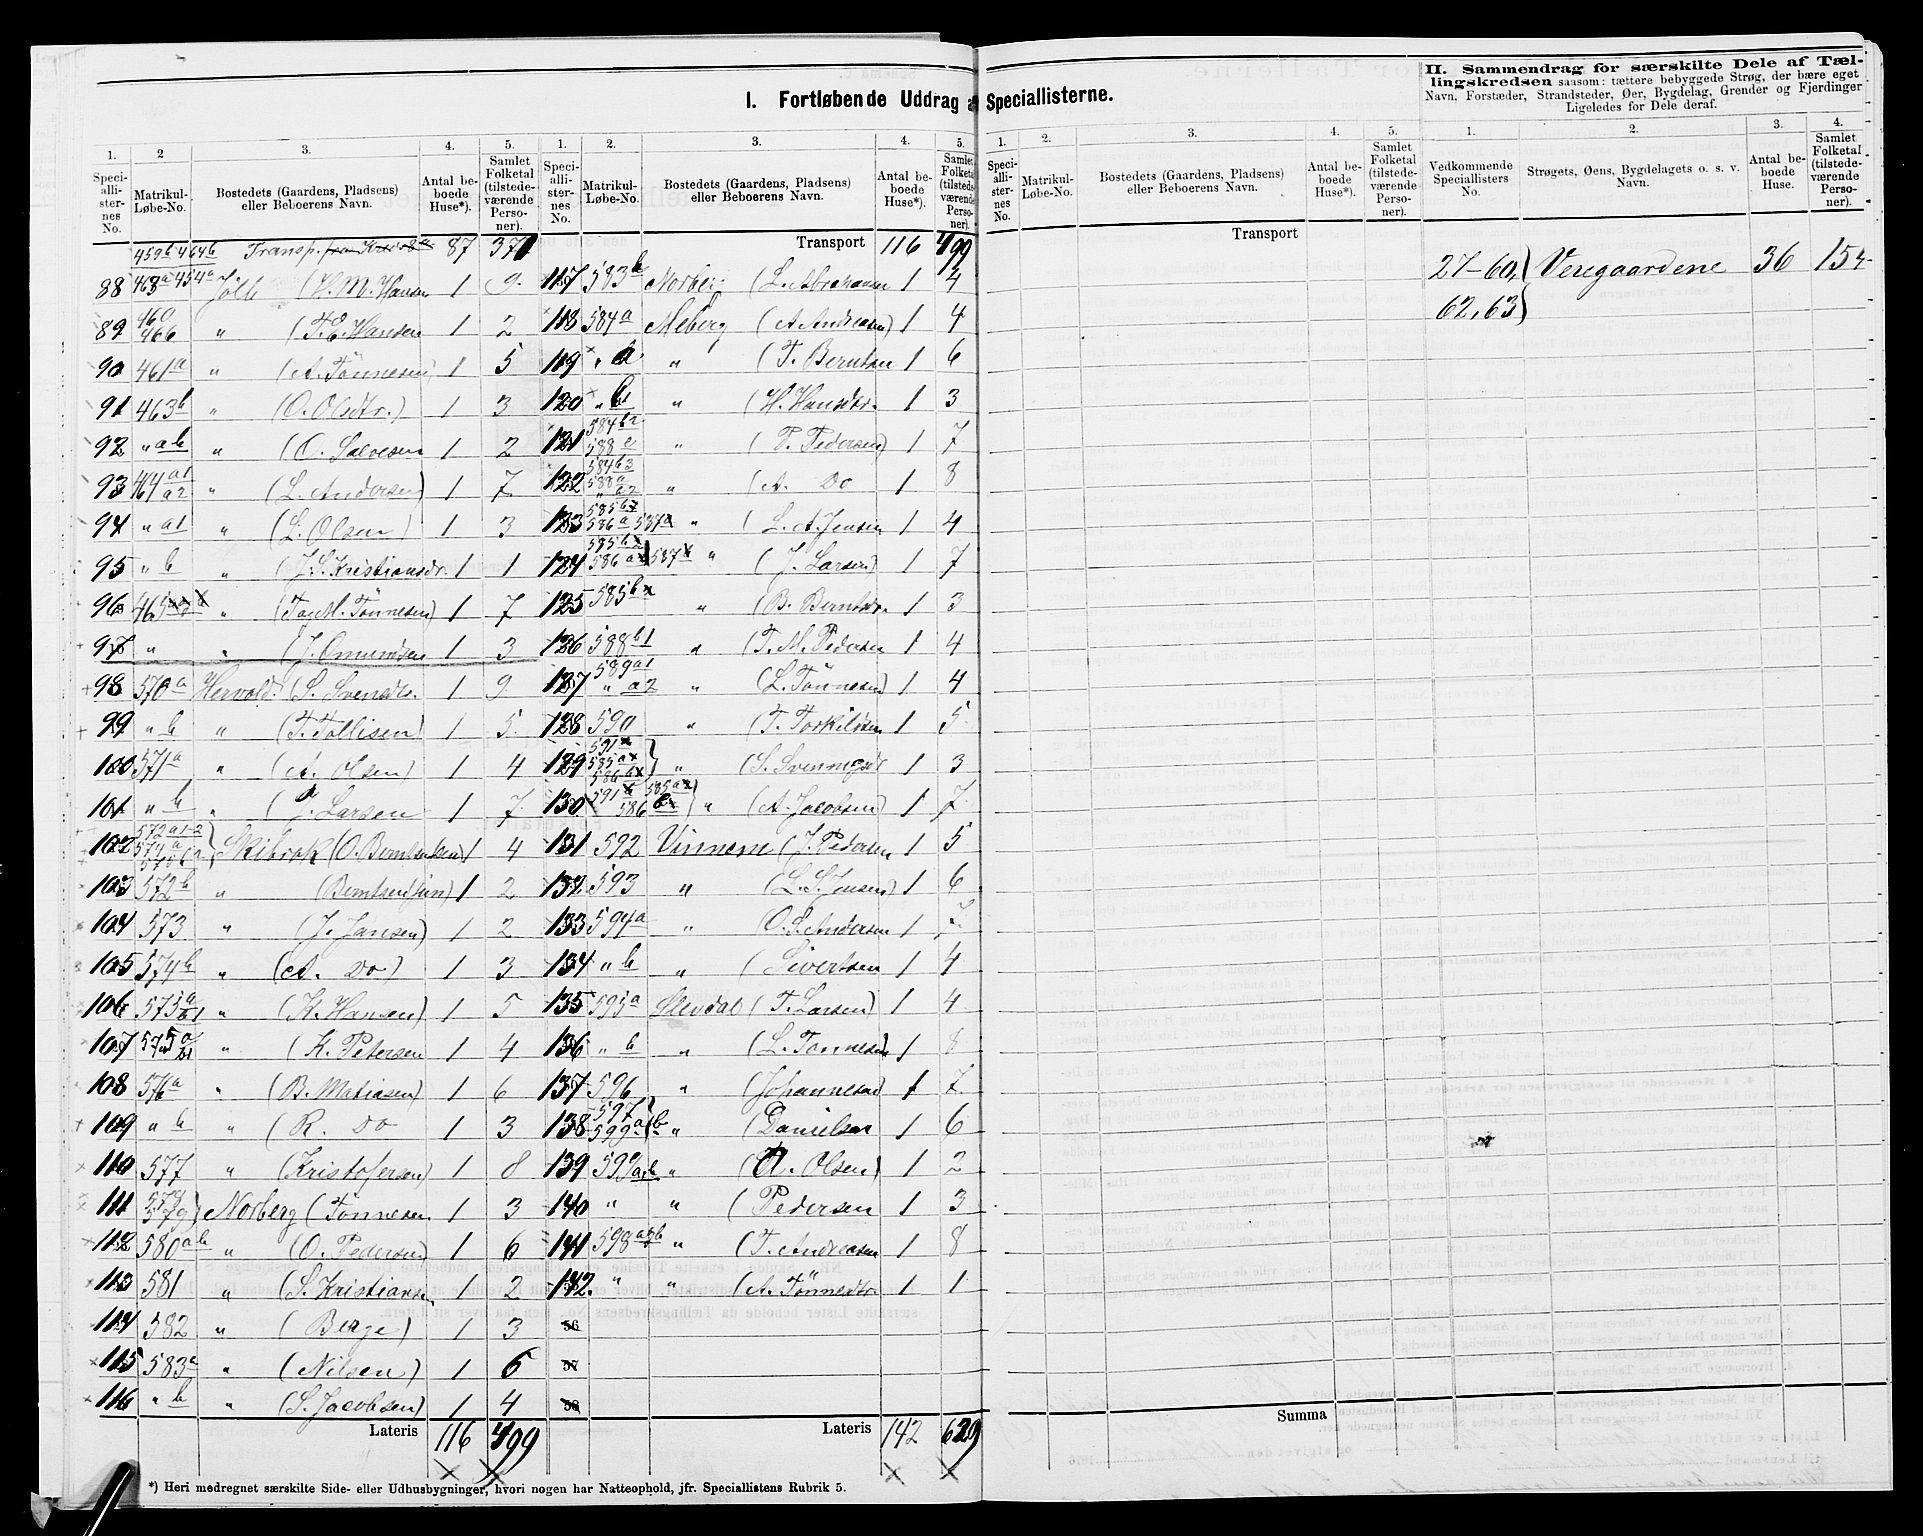 I. Fortløbende Uddrag a Speciallisterne.
II. Sammendrag for særskilte Dele af Tæl-
lingskredsen saasom: tættere bebyggede Strøg, der bære eget
Navn, Forstæder, Strandsteder, Øer, Bygdelag, Grender og Fjerdinger
Ligeledes for Dele deraf.
1. 2 3. 4. 5.
Speci-alli-ster-nes No. Matrikul-Løbe-No. Bostedets (Gaardens, Pladsens) eller Beboerens Navn. Antal be-boede Huse*). Samlet Folketal (tilstede-værende Perso-ner).
459b 464b Transp. 87 371
88 463a 454a Jölle (H. M. Hansen 1 9
89 460 466 " (T. E. Hansen 1 2
90 461a " (A. Tönnesen) 1 5
91 463b " (O. Olsdtr.) 1 3
92 " ab " (O. Salvesen 1 2
93 464 a1 a2 " (L. Andersen) 1 7
94 " a1 " (L. Olsen) 1 3
95 " b " (J. S. Kristiansdr. 1 1
96 465 " (Tag M. Tönnesen) 1 7
97 " " (J. Omundsen 1 3
98 570a Hervold. (S. Svendtr. 1 9
99 " b " (T. Tollisen) 1 5
100 571a " (A. Olsen) 1 4
101 " b " (J. Larsen 1 7
102 572a1-2 574a Skibrok (O. Berntsen 1 4
103 572b " (Berntsen jun) 1 2
104 573 " (J. Jansen) 1 2
105 574b " (A. Do) 1 3
106 575a b1 " (K. Hansen) 1 5
107 575 a " (K. Petersen 1 4
108 576a " (B. Matiasen) 1 6
109 " b " (R. Do 1 3
110 577 " (Kristofersen) 1 8
111 578 579 } Norberg (Tönnesen 1 3
112 580ab " (O. Pedersen) 1 6
113 581 " (S. Kristiansen 1 2
114 582 " (Berge) 1 3
115 583a " (Nilsen) 1 6
116 " b " (S. Jacobsen) 1 4
Lateris 116 499
*) Heri medregnet særskilte Side- eller Udhusbygninger, hvori nogen har Natteophold, jfr. Speciallistens Rubrik 5.
1. 2. 3. 4. 5.
Speci-alli-ster-nes No. Matrikul-Løbe-No. Bostedets (Gaardens, Pladsens) eller Beboerens Navn. Antal be-boede Huse*). Samlet Folketal (tilstede-værende Perso-ner).
Transport 116 499
117 583b Norberg (L. Abrahamsen 1 4
118 584a Meberg (A. Andreasen) 1 4
119 " a " (T. Berntsen 1 6
120 " b1 " (H. Hansdtr. 1 3
121 584b2 588c " (P. Pedersen) 1 7
122 584b3 588a " a2 " (A. Do 1 8
123 585b 586a 587a " (L. A. Jensen 1 4
124 585b 586a 587 " (J. Larsen) 1 7
125 585b " (B. Berntsdr. 1 3
126 588b1 " (T. M. Pedersen 1 4
127 589a1 " a2 " (L. Tönnesen) 1 4
128 590 " (T. Torkildsen 1 5
129 591 585a 586b } " (S. Svenningsdr 1 3
130 591 585a 586 } " (A. Jacobsen) 1 7
131 592 Vinnem (J. Pedersen 1 5
132 593 " (L. S. Jensen) 1 6
133 594a " O. S. Andersen 1 7
134 " b " (Sivertsen 1 4
135 595a Slevdal (T. Larsen) 1 4
136 " b " (L. Tönnesen) 1 8
137 596 " (Johannesen) 1 7
138 597 599a b " (Danielsen 1 6
139 599ab " (A. Olsen) 1 2
140 " " (Pedersen 1 3
141 598ab " (T. Andreasen 1 8
142 " " (A. Tönnesdtr. 1 1
56
57
58
Lateris 142 629
1. 2. 3. 4. 5.
Speci-alli-ster-nes No. Matrikul-Løbe-No. Bostedets (Gaardens, Pladsens) eller Beboerens Navn. Antal be-boede Huse*). Samlet Folketal (tilstede-værende Perso-ner).
Transport
Summa
1. 2. 3. 4.
Vedkommende Speciallisters No. Strøgets, Øens, Bygdelagets o. s. v. Navn. Antal be-boede Huse. Samlet Folketal (tilstede-værende Perso-ner).
27-60,) Veregaardene 36 154
62, 63)